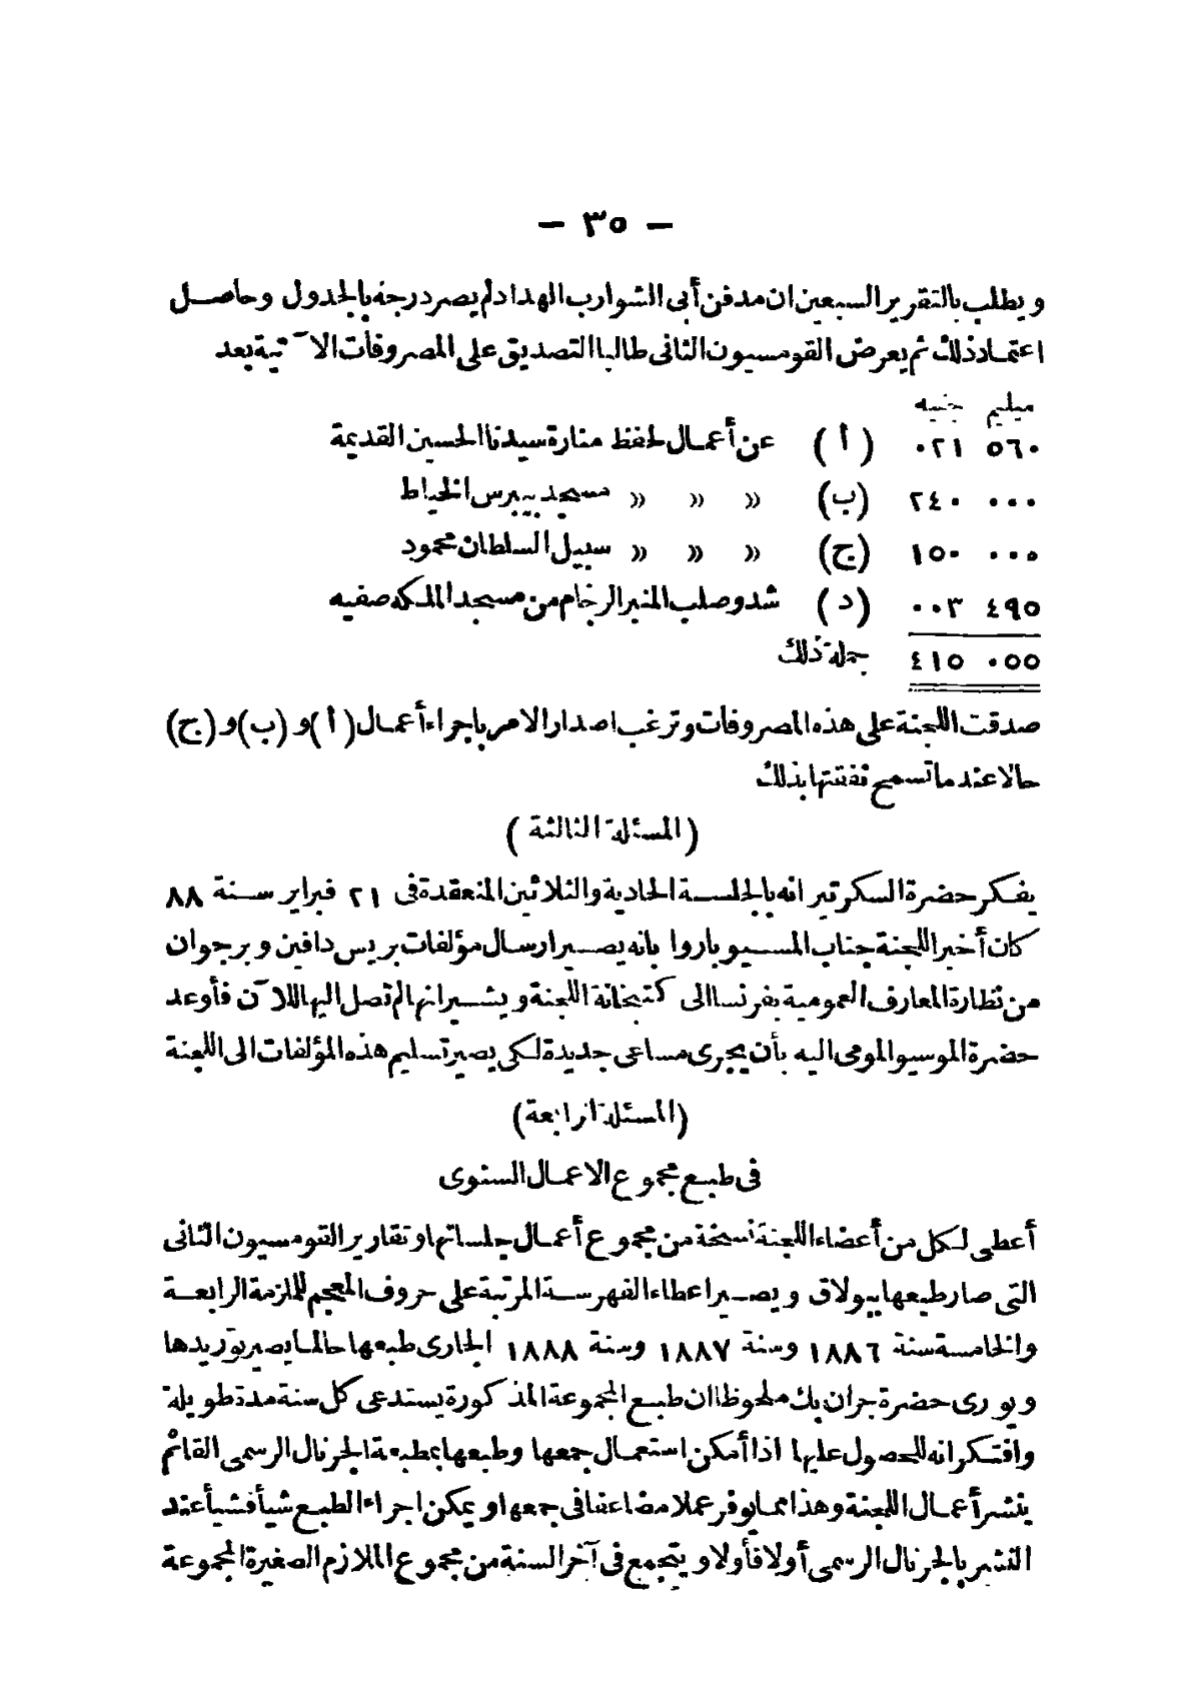 — ٣٥ —
ويطلب بالتقرير السبعين ان مدفن أبى الشوارب الهداد لم يصر درجه بالجدول وحاصل
اعتماد ذلك ثم يعرض القومسيون الثانى طالبا التصديق على المصروفات الآتية بعد
مليم جنيه
٥٦٠ ٠٢١ (أ) عن أعمال لحفظ منارة سيدنا الحسين القديمة
٠٠٠ ٢٤٠ (ب) » » » مسجد بيبرس الخياط
٠٠٠ ١٥٠ (ج) » » » سبيل السلطان محمود
٤٩٥ ٠٠٣ (د) شد وصلب المنبر الرخام من مسجد الملكه صفيه
٠٥٥ ٤١٥ جملة ذلك
صدقت اللجنة على هذه المصروفات وترغب اصدار الامر باجراء أعمال (أ) و (ب) و (ج)
حالا عند ما تسمح نفقتها بذلك
(المسئلة الثالثة)
يفكر حضرة السكرتير انه بالجلسة الحادية والثلاثين المنعقدة فى ٢١ فبراير سنة ٨٨
كان أخبر اللجنة جناب المسيو باروا بانه يصير ارسال مؤلفات بريس دافين وبرجوان
من نظارة المعارف العمومية بفرنسا الى كتبخانة اللجنة ويشير انها لم تصل اليها للآن فأوعد
حضرة الموسيو المومى اليه بأن يجرى مساعى جديدة لكى يصير تسليم هذه المؤلفات الى اللجنة
(المسئلة الرابعة)
فى طبع مجموع الاعمال السنوى
أعطى لكل من أعضاء اللجنة نسخة من مجموع أعمال جلساتها وتقارير القومسيون الثانى
التى صار طبعها ببولاق ويصير اعطاء الفهرسة المرتبة على حروف المعجم للملزمة الرابعة
والخامسة سنة ١٨٨٦ وسنة ١٨٨٧ وسنة ١٨٨٨ الجارى طبعها حالما يصير توريدها
ويورى حضرة جران بك ملحوظا ان طبع المجموعة المذكورة يستدعى كل سنة مدة طويلة
وافتكر انه للحصول عليها اذا أمكن استعمال جمعها وطبعها بمطبعة الجرنال الرسمى القائم
بنشر أعمال اللجنة وهذا مما يوفر عملا مضاعفا فى جمعها ويمكن اجراء الطبع شيأ فشيأ عند
النشر بالجرنال الرسمى أولا فأولا ويتجمع فى آخر السنة من مجموع الملازم الصغيرة المجموعة